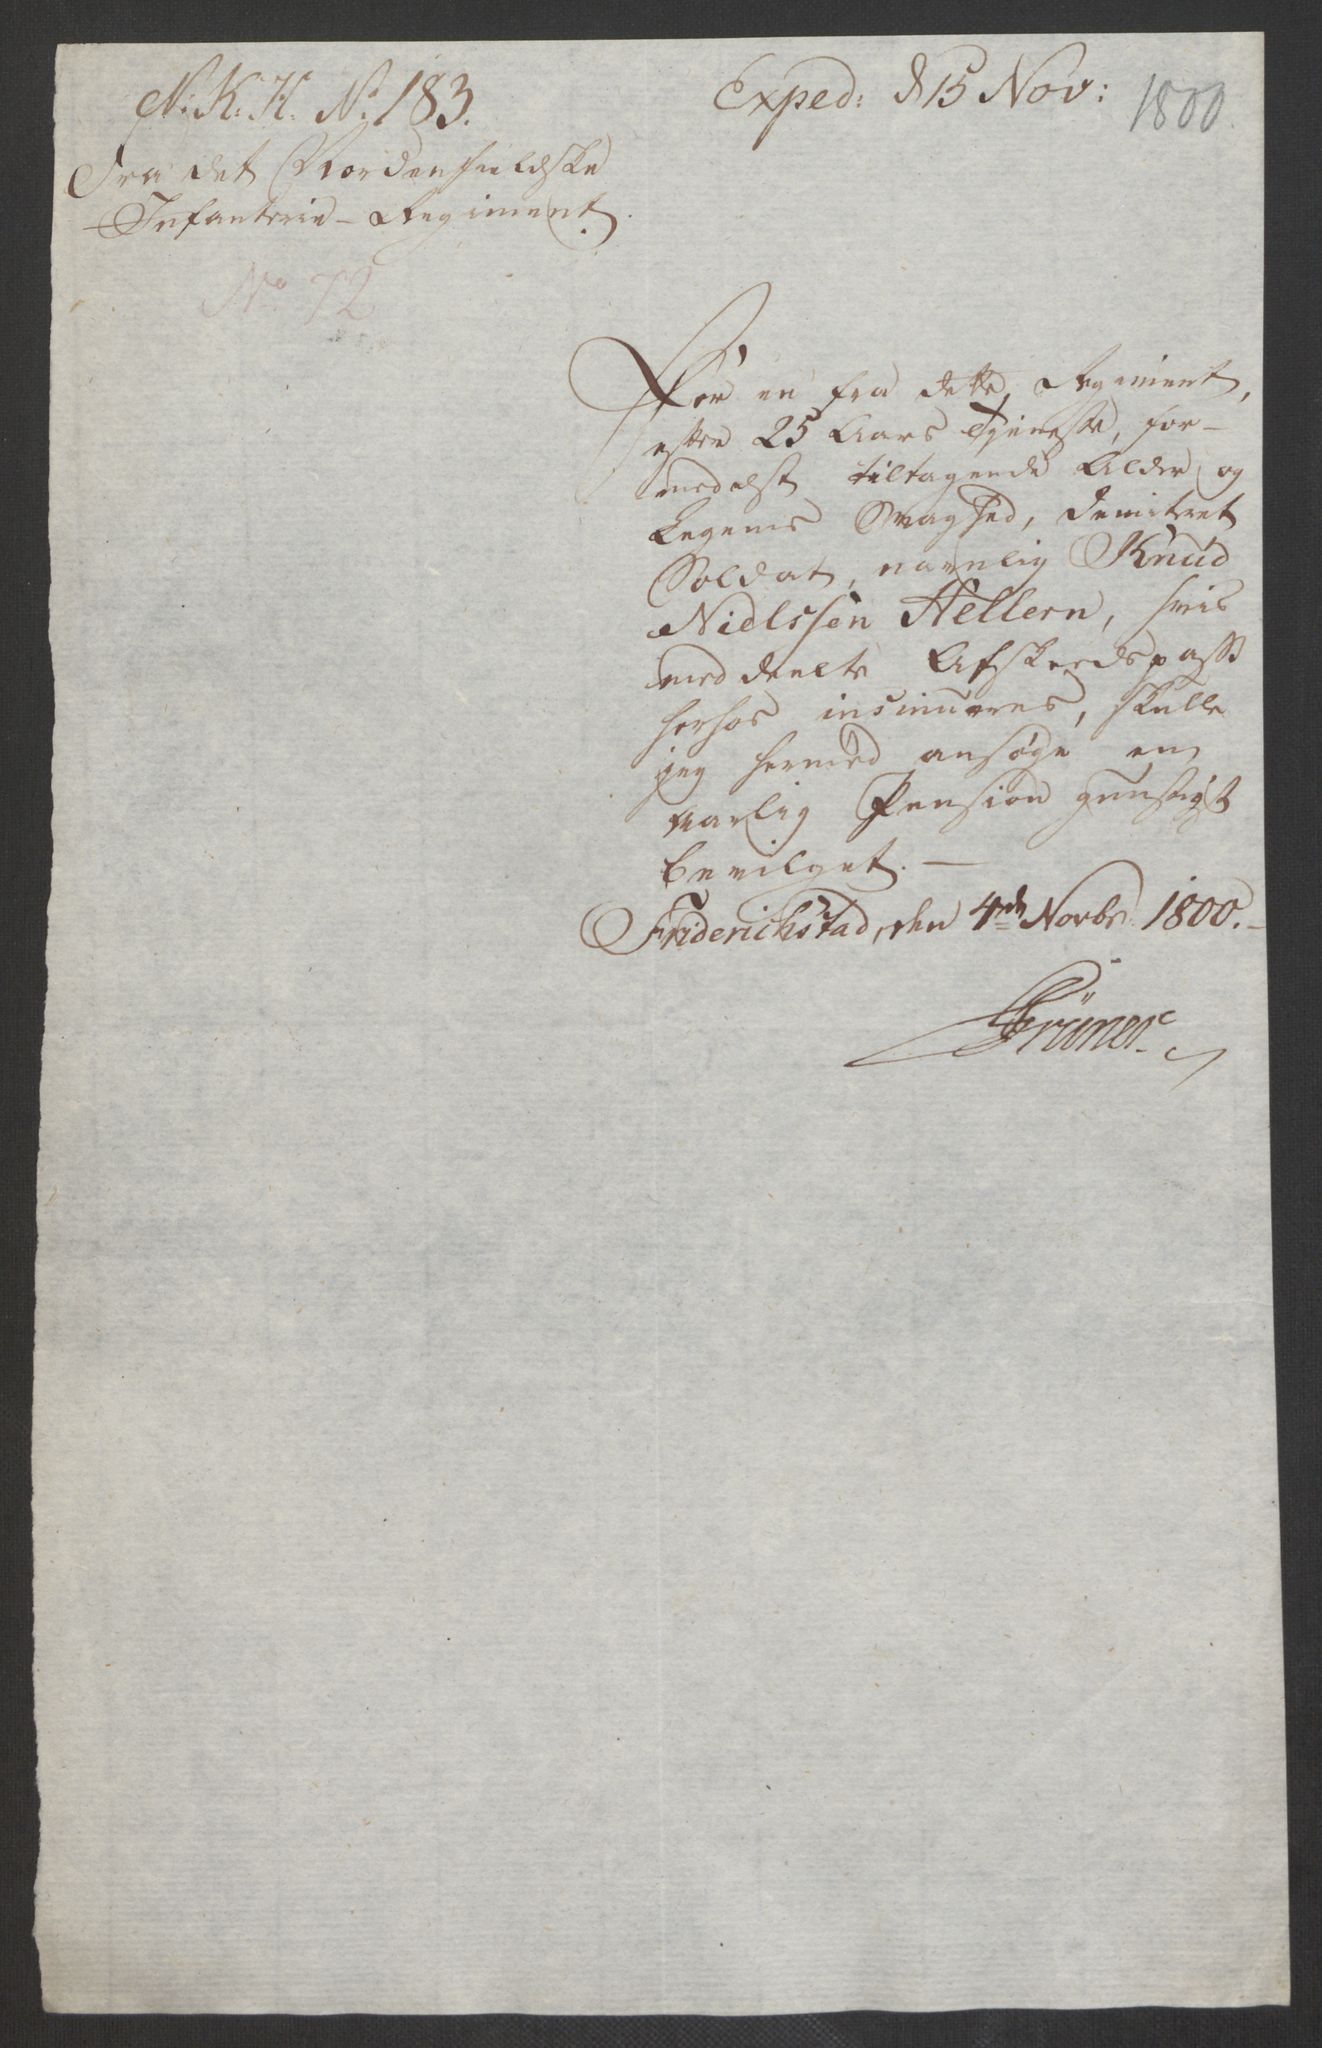 N: K: K: No 183.
Exped: d 15 Nov:
1800.
Fra det Nordenfieldske
Infanterie-Regiment.
No 72
For en fra dette Regiment,
efter 25 Aars Tieneste, for-
medelst tiltagende Alder og
Legems Svaghed, demitteret
Soldat, navnlig Knud
Nielssen Hellern, hvis
meddeelte Afskeedspass
herhos insinueres, skulle
jeg hermed ansøge en
aarlig Pension gunstigst
bevilget. —
Friderichstad, den 4de Novbr 1800. -
Grüner